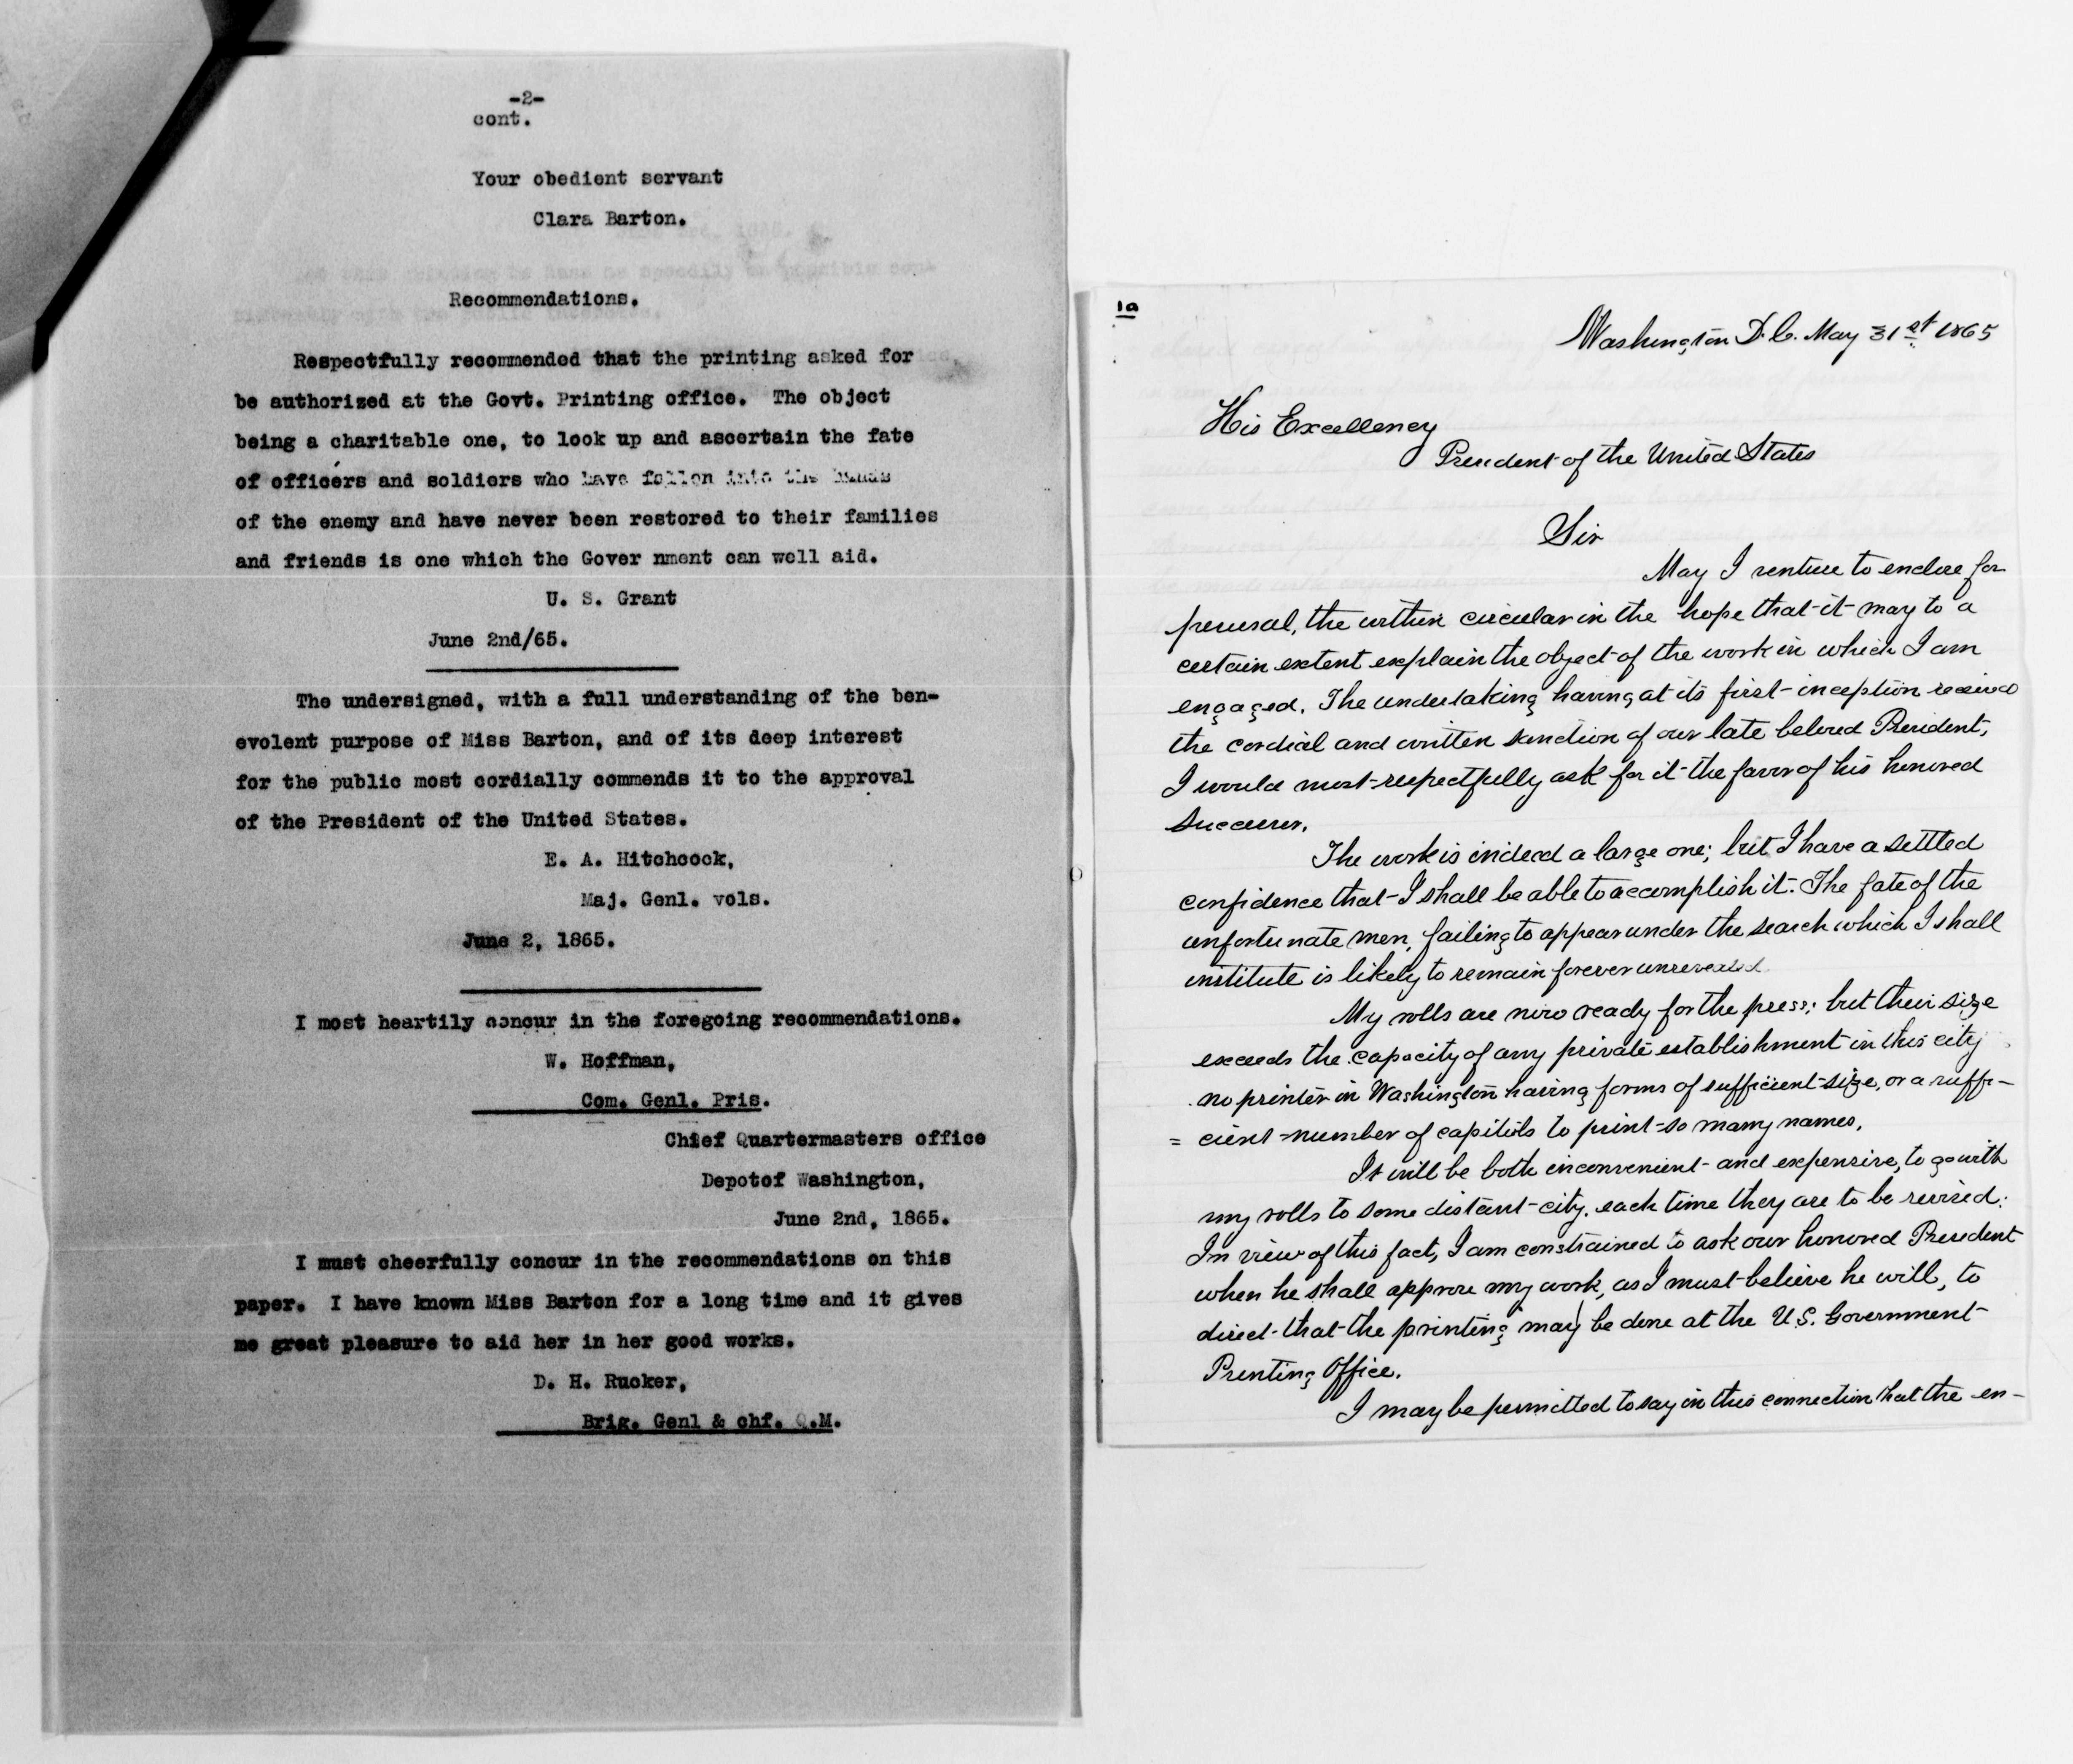 -2-
cont.
Your obedient servant
Clara Barton.
Recommendations.
Respectfully recommended that the printing asked for
be authorized at the Govt. Printing office. The object
being a charitable one, to look up and ascertain the fate
of officers and soldiers who have fallen into the hands
of the enemy and have never been restored to their families
and friends is one which the Gover nment can well aid.
U. S. Grant
June 2nd/65.
The undersigned, with a full understanding of the ben-
evolent purpose of Miss Barton, and of its deep interest
for the public most cordially commends it to the approval
of the President of the United States.
E. A. Hitchcock,
Maj. Genl. vols.
June 2, 1865.
I most heartily concur in the foregoing recommendations.
W. Hoffman,
Com. Genl. Pris.
Chief Quartermasters office
Depotof Washington,
June 2nd, 1865.
I must cheerfully concur in the recommendations on this
paper. I have known Miss Barton for a long time and it gives
me great pleasure to aid her in her good works.
D. H. Rucker,
Brig. Genl & chf. Q.M.
1a
Washington D.C. May 31st 1865
His Excellency
President of the United States
Sir
May I venture to enclose for
perusal, the within circular in the hope that it may to a
certain extent explain the object of the work in which I am
engaged. The undertaking having at its first inception received
the cordial and written sanction of our late beloved President,
I would most respectfully ask for it the favor of his honored
Successor.
The work is indeed a large one; but I have a settled
confidence that I shall be able to accomplish it. The fate of the
unfortunate men, failing to appear under the search which I shall
institute is likely to remain forever unrevealed.
My rolls are now ready for the press; but their size
exceeds the capacity of any private establishment in this city
no printer in Washington having forms of sufficient size, or a suffi-
= cient number of capitols to print so many names.
It will be both inconvenient and expensive, to go with
my rolls to some distant city, each time they are to be revised.
In view of this fact, I am constrained to ask our honored President
when he shall approve my work, as I must believe he will, to
direct that the printing may be done at the U.S. Government
Printing Office.
I may be permitted to say in this connection that the en-